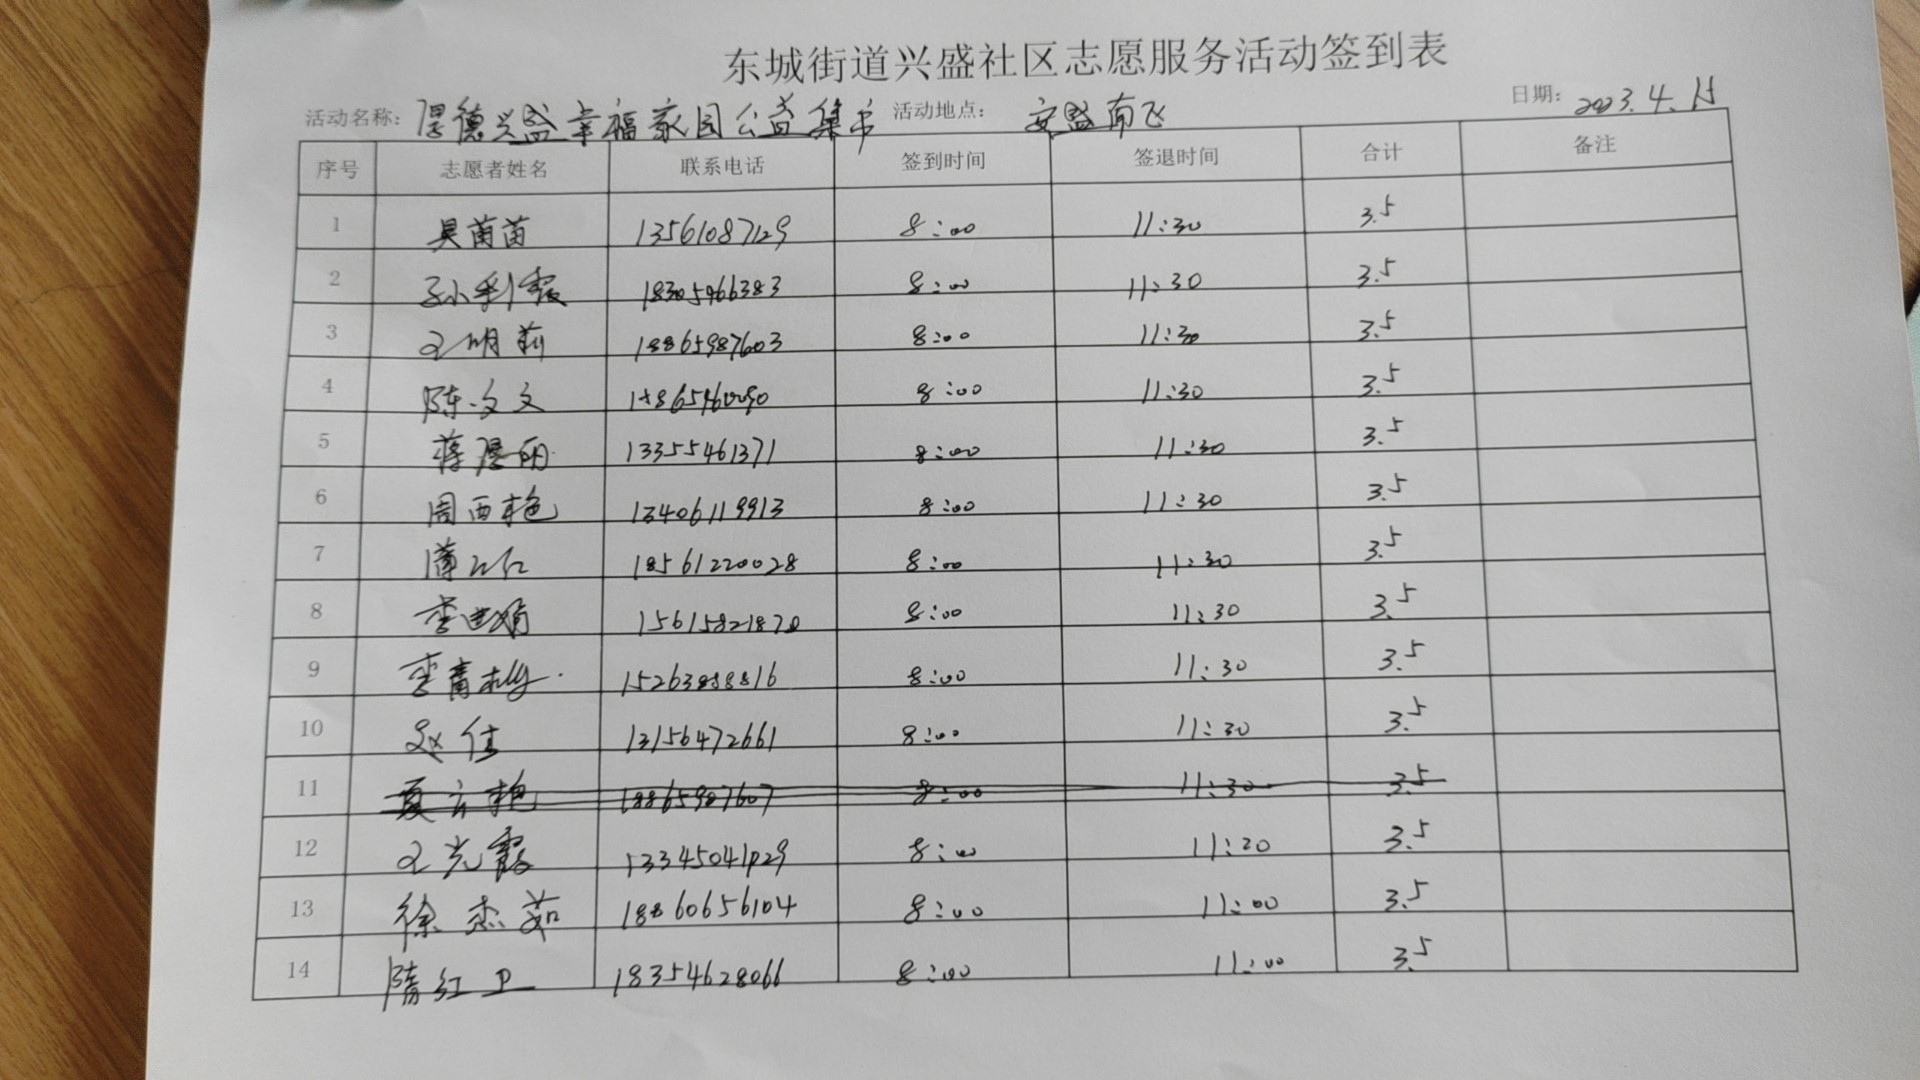 东城街道兴盛社区志愿服务活动签到表
活动名称: 厚德兴盛幸福家园公益集市 活动地点: 安盛南飞 日期: 2023.4.15
序号 志愿者姓名 联系电话 签到时间 签退时间 合计 备注
1 吴茵苗 13561087129 8:00 11:30 3.5
2 孙利霞 18305466383 8:00 11:30 3.5
3 王明莉 18865987603 8:00 11:30 3.5
4 陈文文 8:00 11:30 3.5
5 13355461371 8:00 11:30 3.5
6 周西艳 13406119913 8:00 11:30 3.5
7 18561220028 8:00 11:30 3.5
8 8:00 11:30 3.5
9 8:00 11:30 3.5
10 赵佳 13156472661 8:00 11:30 3.5
11 夏云艳 18865987607 8:00 11:30 3.5
12 王光霞 8:00 11:30 3.5
13 徐杰茹 18860656104 8:00 11:00 3.5
14 隋红卫 18354628066 8:00 11:00 3.5